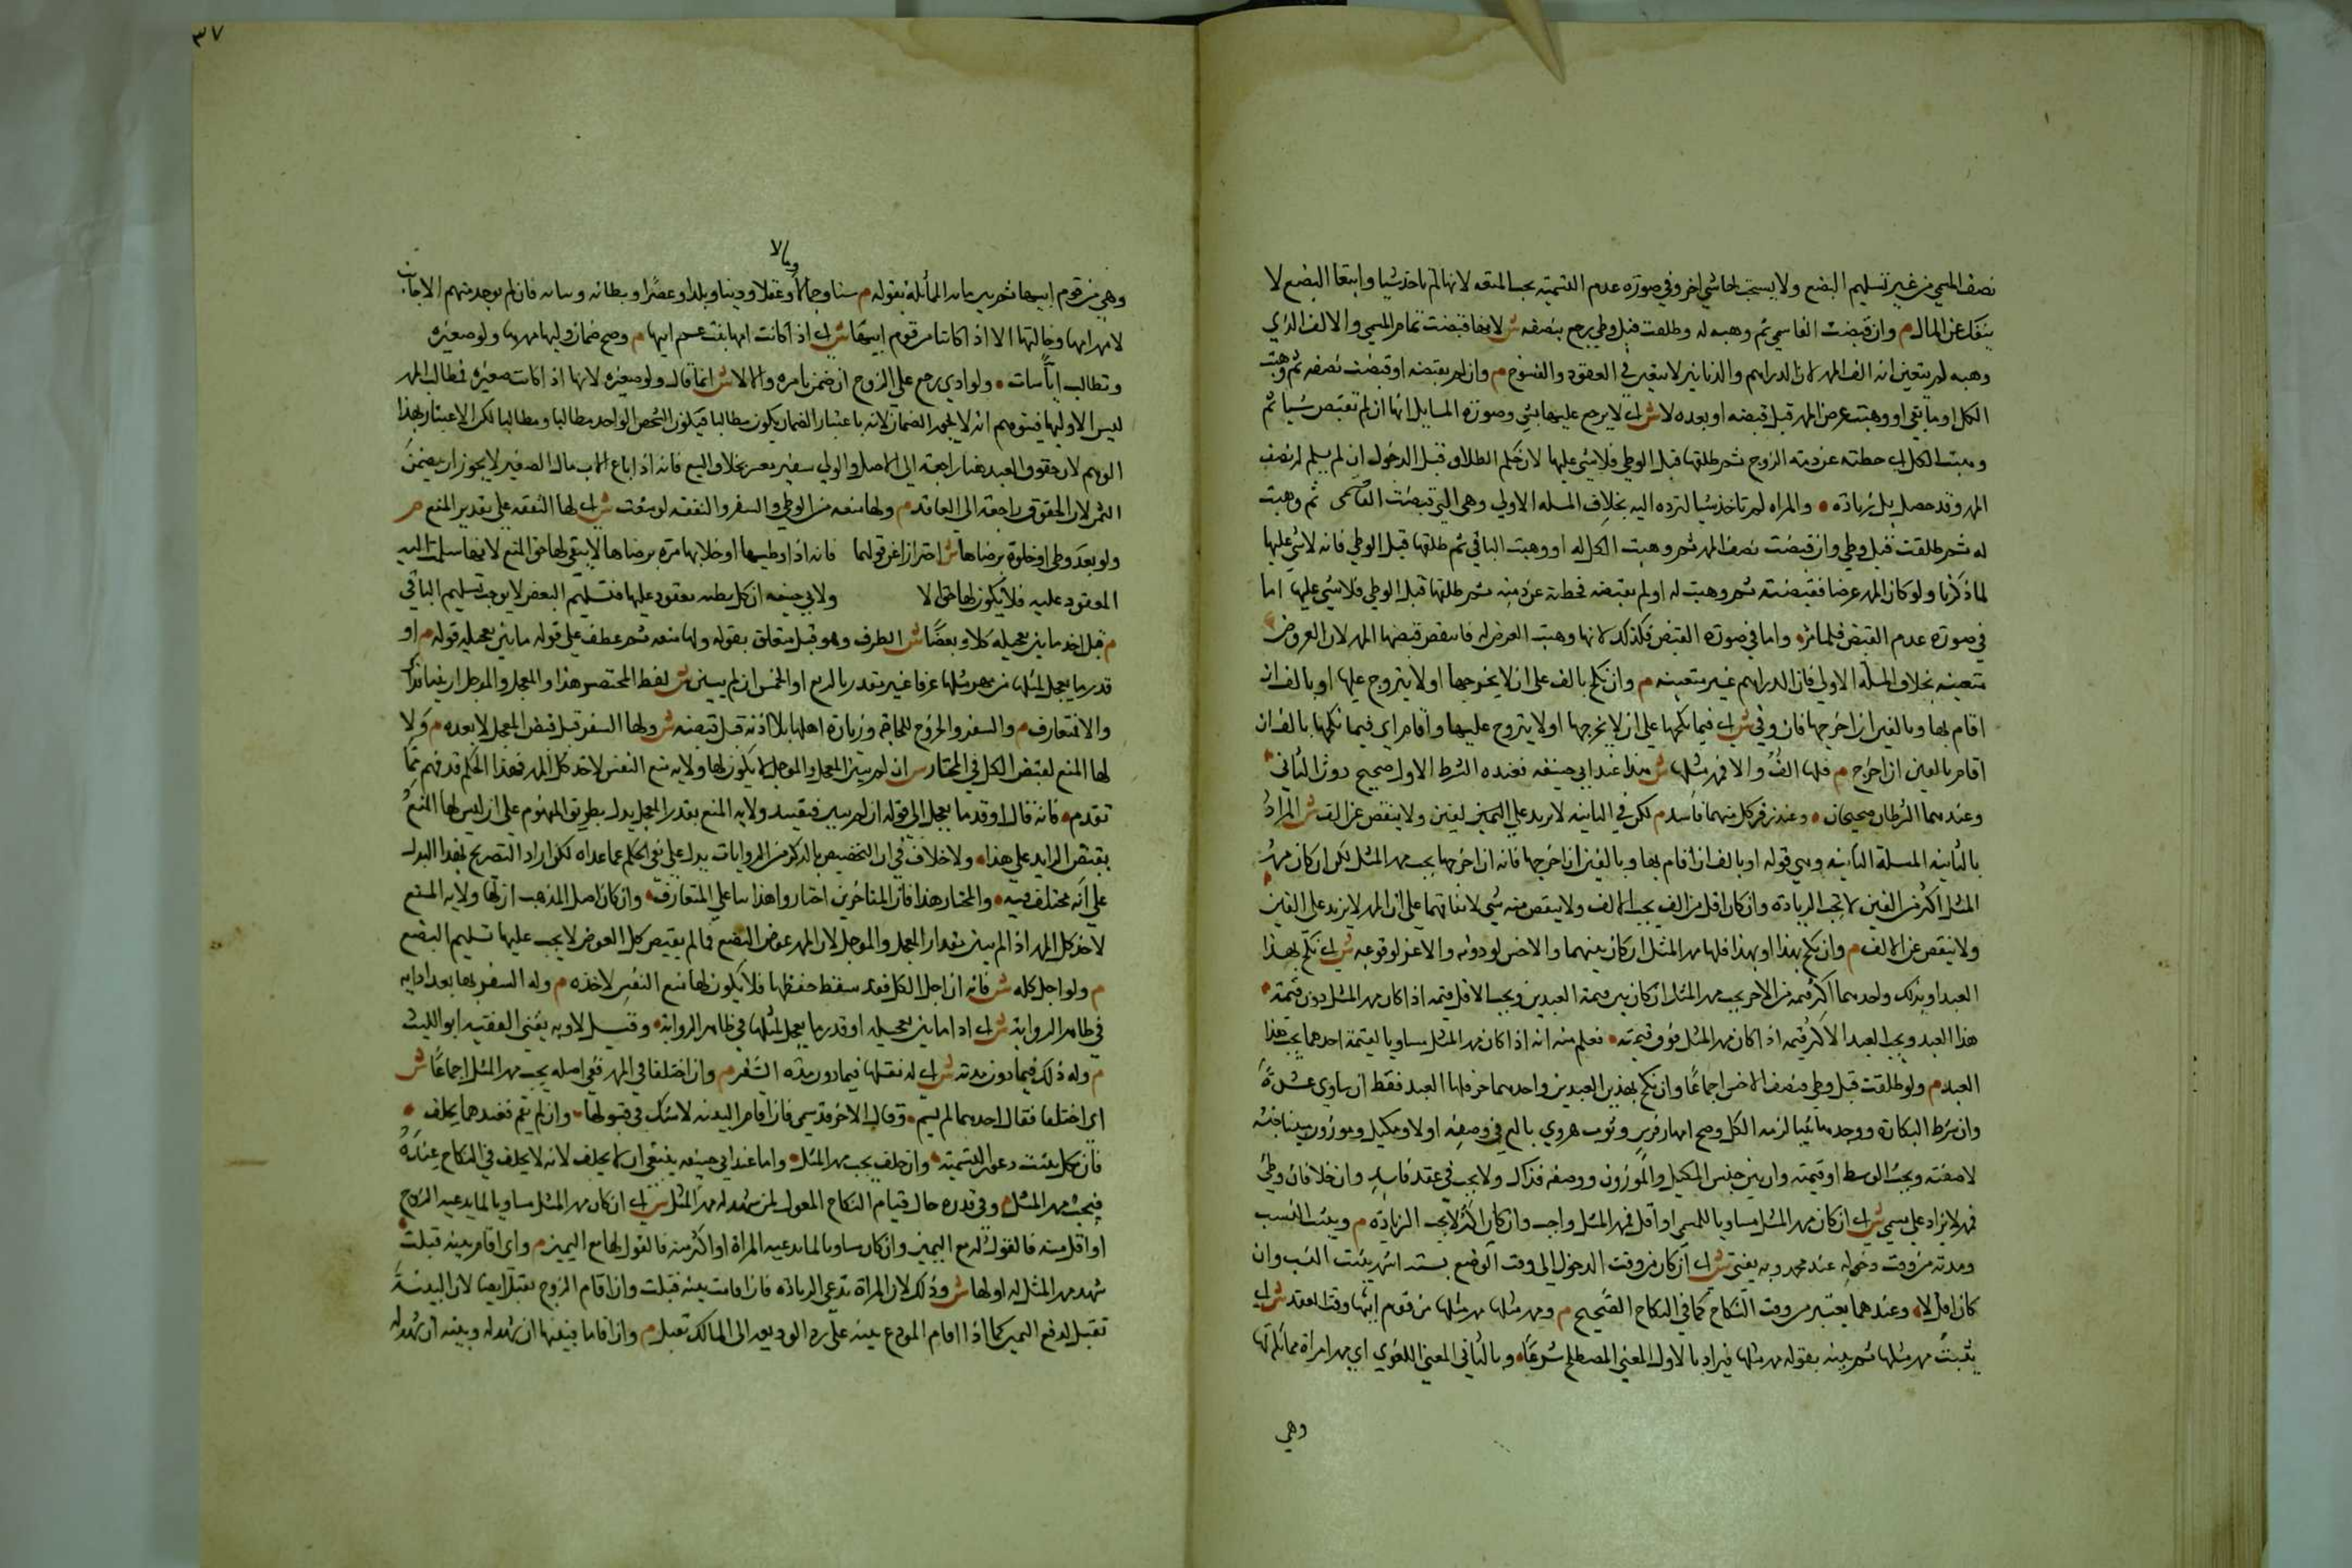 نصف المسمي من غير تسليم البضع ولا يستحق لها شي اخر وفي صورة عدم التسمية يجب المتعه لانها لم تاخذ شيا وابتغا البضع لا
ينفك عن المال م وان قبضت الفا سمي ثم وهبه له وطلقت قبل وطي رجع بنصفه ش لانها قبضت تمام المسمي والالف الذي
وهبه لم يتعين انه الف المهر لان الدراهم والدنانير لا تتعين في العقود والفسوخ م وان لم يقبضه او قبضت نصفه ثم وهبت
الكل او ما بقي او وهبت عرض المهر قبل قبضه او بعده لا ش اي لا يرجع عليها بشي وصورة المسايل انها ان لم تقبض شيا ثم
وهبت الكل اي حطته عن ذمة الزوج ثم طلقها قبل الوطي فلا شي عليها لان حكم الطلاق قبل الدخول ان لم يسلم له نصف
المهر وقد حصل بل زيادة • والمراه لم تاخذ شيا لترده اليه بخلاف المسله الاولي وهي التي قبضت الف سمي ثم وهبت
له ثم طلقت قبل وطي وان قبضت نصف المهر ثم وهبت الكل له او وهبت الباقي ثم طلقها قبل الوطي فانه لا شي عليها
لما ذكرنا ولو كان المهر عرضا فقبضته ثم وهبت له او لم تقبضه فحطته عن ذمته ثم طلقها قبل الوطي فلا شي عليها اما
في صورة عدم القبض فلما مر • واما في صورة القبض فكذلك لانها وهبت العرض له فانتقض قبضها المهر لان العروض
متعينه بخلاف المسلة الاولي فان الدراهم غير متعينه م وان نكح بالف علي ان لا يخرجها او لا يتزوج عليها او بالف ان
اقام بها وبالفين ان اخرجها فان وفي ش اي فيما نكحها علي ان لا يخرجها او لا يتزوج عليها واقام اي فيما نكحها بالف ان
اقام بالفين ان اخرج م فلها الف والا فمهر مثلها ش هذا عند ابي حنيفه فعنده الشرط الاول صحيح دون الثاني •
وعندهما الشرطان صحيحان • وعند زفر كل منهما فاسد م لكن في الثانيه لا يزيد علي الفين ولا ينقص عن الف ش المراد
بالثانيه المسلة الثانيه وهي قوله او بالف ان اقام بها وبالفين ان اخرجها فانه ان اخرجها يجب مهر المثل لكن ان كان مهر
المثل اكثر من الفين لا تجب الزيادة وان كان اقل من الف يجب الالف ولا ينقص منه شي لاتفاقهما علي ان المهر لا يزيد علي الفين
ولا ينقص عن الالف م وان نكح بهذا او بهذا فلها مهر المثل ان كان بينهما والاخس لو دونه والاعز لو فوقه ش اي نكح بهذا
العبد او بذلك واحدهما اكثر قيمه من الاخر يجب مهر المثل ان كان بين قيمة العبدين ويجب الاقل قيمه اذا كان مهر المثل دون قيمته •
هذا العبد ويجب العبد الاكثر قيمه اذا كان مهر المثل فوق قيمته • فعلم منه انه اذا كان مهر المثل مساويا لقيمة احدهما يجب هذا
العبد م ولو طلقت قبل وطي فنصف الاخس اجماعا وان نكح بهذين العبدين واحدهما حر فلها العبد فقط ان ساوي عشرة
وان شرط البكارة ووجدها ثيبا لزمه الكل وصح امهار فرس وثوب هروي بالغ في وصفه او لا ومكيل وموزون بين جنسه
لا صفته ويجب الوسط او قيمته وان بين جنس المكيل والموزون ووصفه فذاك ولا يجب في عقد فاسد وان خلا فان وطي
فمهر لا يزاد علي مسمي ش اي ان كان مهر المثل مساويا للمسمي او اقل فمهر المثل واجب وان كان اكثر لا تجب الزيادة م ويثبت النسب
ومدته من وقت دخوله عند محمد وبه يفتي ش اي ان كان من وقت الدخول الي وقت الوضع ستة اشهر يثبت النسب وان
كان اقل لا • وعندهما يعتبر من وقت النكاح كما في النكاح الصحيح م ومهر مثلها مهر مثلها من قوم ابيها وقت العقد ش اي
يثبت مهر مثلها ثم بينه بقوله مهر مثلها فيراد بالاول المعني المصطلح شرعا • وبالثاني المعني اللغوي اي مهر امراة مماثلة لها
وهي
٣٧
ومالا
وهي من قوم ابيها ثم بين ما به المماثلة بقوله م سنا وجمالا وعقلا ودينا وبلدا وعصرا وبكارة وثيابة فان لم يوجد منهم الاجانب
لا مهر امها وخالتها الا اذا كانتا من قوم ابيها ش اي اذا كانت امها بنت عم ابيها م وصح ضمان وليها مهرها ولو صغيره
وتطالب ايا شات • ولو ادي رجع علي الزوج ان ضمن بامره والا لا ش انما قال ولو صغيره لانها اذا كانت صغيره فطالب المهر
ليس الا وليها فيتوهم انه لا يجوز الضمان لانه باعتبار الضمان يكون مطالبا فيكون الشخص الواحد مطالبا ومطالبا لكن لا اعتبار لهذا
الوهم لان حقوق العقد هنا راجعة الي الاصيل والولي سفير ومعبر بخلاف البيع فانه اذا باع الاب مال الصغير لا يجوز ان يضمن
الثمن لان الحقوق راجعة الي العاقد م ولها منعه من الوطي والسفر والنفقه لو منعت ش اي لها النفقه علي تقدير المنع م
ولو بعد وطي او خلوة برضاها ش احترازا عن قولهما فانه اذا وطيها او خلا بها مرة برضاها لا يبقي لها حق المنع لانها سلمت اليه
المعقود عليه فلا يكون لها حق الا ولابي حنيفه ان كل وطيه معقود عليها فتسليم البعض لا يوجب تسليم الباقي
م قبل اخذ ما بين تعجيله كلا او بعضا ش الظرف وهو قبل متعلق بقوله ولها منعه ثم عطف علي قوله ما بين تعجيله قوله م او
قدر ما يعجل لمثلها من مهر مثلها عرفا غير مقدر بالربع او الخمس ان لم يبين ش لفظ المختصر هذا والمعجل والموجل ان بينا فذاك
والا فمتعارف م والسفر والخروج للحاجة وزيارة اهلها بلا اذنه قبل قبضه ش ولها السفر قبل قبض المعجل لا بعده م ولا
لها المنع لقبض الكل في المختار ش ان لم يبين المعجل والموجل لا يكون لها ولاية منع النفس لاخذ كل المهر فهذا الحكم قد فهم مما
تقدم • فانه قال او قدر ما يعجل الي قوله ان لم يبين فتقييد ولاية المنع بقدر المعجل يدل بطريق المفهوم علي ان ليس لها المنع
بقبض الزايد علي هذا • ولا خلاف في ان التخصيص بالذكر في الروايات يدل علي نفي الحكم عما عداه لكن اراد التصريح بهذا ليدل
علي انه مختلف فيه • والمختار هذا فان المتاخرين اختاروا هذا بنا علي المتعارف • وان كان اصل المذهب ان لها ولاية المنع
لاخذ كل المهر اذا لم يبين مقدار المعجل والموجل لان المهر عوض البضع فما لم يقبض كل العوض لا يجب عليها تسليم البضع
م ولو اجل كله ش فانه ان اجل الكل فقد سقط حقها فلا يكون لها منع النفس لاخذه م وله السفر بها بعد ادايه
في ظاهر الرواية ش اي اداء ما بين تعجيله او قدر ما يعجل لمثلها في ظاهر الرواية • وقيل لا وبه يفتي الفقيه ابو الليث
م وله ذلك فيما دون مدته ش اي له نقلها فيما دون مدة السفر م وان اختلفا في المهر ففي اصله يجب مهر المثل اجماعا ش
اي اختلفا فقال احدهما لم يسم • وقال الاخر قد سمي فان اقام البينه لا شك في قبولها • وان لم يقم فعندهما يحلف •
فان نكل يثبت دعوي التسمية • وان حلف يجب مهر المثل • واما عند ابي حنيفه ينبغي ان لا يحلف لانه لا يحلف في النكاح عنده
فيجب مهر المثل م وفي قدره حال قيام النكاح القول لمن شهد له مهر المثل ش اي ان كان مهر المثل مساويا لما يدعيه الزوج
او اقل منه فالقول له مع اليمين وان كان مساويا لما يدعيه المراة او اكثر منه فالقول لها مع اليمين م واي اقام بينه قبلت
شهد مهر المثل له او لها ش وذلك لان المراة تدعي الزيادة فان اقامت بينه قبلت وان اقام الزوج تقبل ايضا لان البينة
تقبل لدفع اليمين كما اذا اقام المودع بينه علي رد الوديعه الي المالك تقبل م وان اقاما فبينتها ان شهد له وبينته ان شهد لها